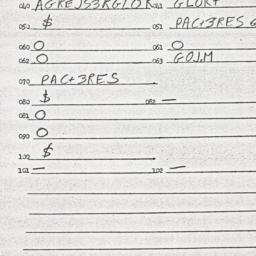 040 AGREJS3RGLOR 041 GLORT
050 $ 051 PAC+3RES
060 O 061 O
062 O 063 GOJM
070 PAC+3RES
080 $ 082 —
081 O
090 O
100 $
101 — 102 —